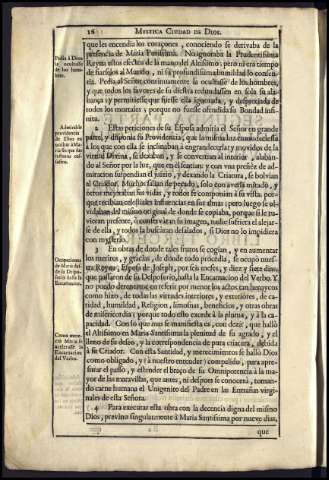 16 MYSTICA CIUDAD DE DIOS.
Pedia à Dios
la ocultasse
de los hom-
bres.
que les encendia los coraçones, conociendo se derivaba de la
presencia de Maria Purissima. No ignoraba la Prudentissima
Reyna estos efectos de la mano del Altissimo: pero ni era tiempo
de fiarselos al Mundo, ni su profundissima humildad lo consen-
tia. Pedia al Señor continuamente la ocultasse de los hombres,
y que todos los favores de su diestra redundassen en sola su ala-
bança, y permitiesse que fuesse ella ignorada, y despreciada de
todos los mortales, porque no fuesse ofendida su Bondad infi-
nita.
2 Estas peticiones de su Esposa admitia el Señor en grande
parte, y disponia su Providencia, que la misma luz enmudeciesse
à los que con ella se inclinaban à engrandecerla; y movidos de la
virtud Divina, se dexaban, y se convertian al interior, alaban-
do al Señor por la luz, que en sì sentian; y con vna preñez de ad-
miracion suspendian el juizio, y dexando la Criatura, se bolvian
al Criador. Muchos salian de pecado, solo con averla mirado, y
otros mejoraban sus vidas, y todos se componian à su vista, por-
que recibian celestiales Influencias en sus almas; pero luego se ol-
vidaban del mismo original de donde se copiaba, porque si le tu-
vieran presente, ò conservaran su imagen, nadie sufriera el alejar-
se de ella, y todos la buscàran desalados, si Dios no lo impidiera
con mysterio.
3 En obras de donde tales frutos se cogian, y en aumentar
los meritos, y gracias, de donde todo procedia, se ocupò nues-
tra Reyna, Esposa de Joseph, por seis meses, y diez y siete dias,
que passaron de su Desposorio, hasta la Encarnacion del Verbo. Y
no puedo detenerme en referir por menor los actos tan heroycos
como hizo, de todas las virtudes interiores, y exteriores, de ca-
ridad, humildad, Religion, limosnas, beneficios, y otras obras
de misericordia: porque todo esto excede à la pluma, y à la ca-
pacidad. Con lo que mas se manifiesta es, con dezir, que hallò
el Altissimo en Maria Santissima la plenitud de su agrado, y el
lleno de su deseo, y la correspondencia de pura criatura, debida
à su Criador. Con esta Santidad, y merecimientos se hallò Dios
como obligado, y (à nuestro entender) compelido, para apre-
surar el passo, y estender el braço de su Omnipotencia à la ma-
yor de las maravillas, que antes, ni despues se conocerà, toman-
do carne humana el Unigenito del Padre en las Entrañas virgi-
nales de esta Señora.
4 Para executar esta obra con la decencia digna del mismo
Dios, previno singularmente à Maria Santissima por nueve dias,
que